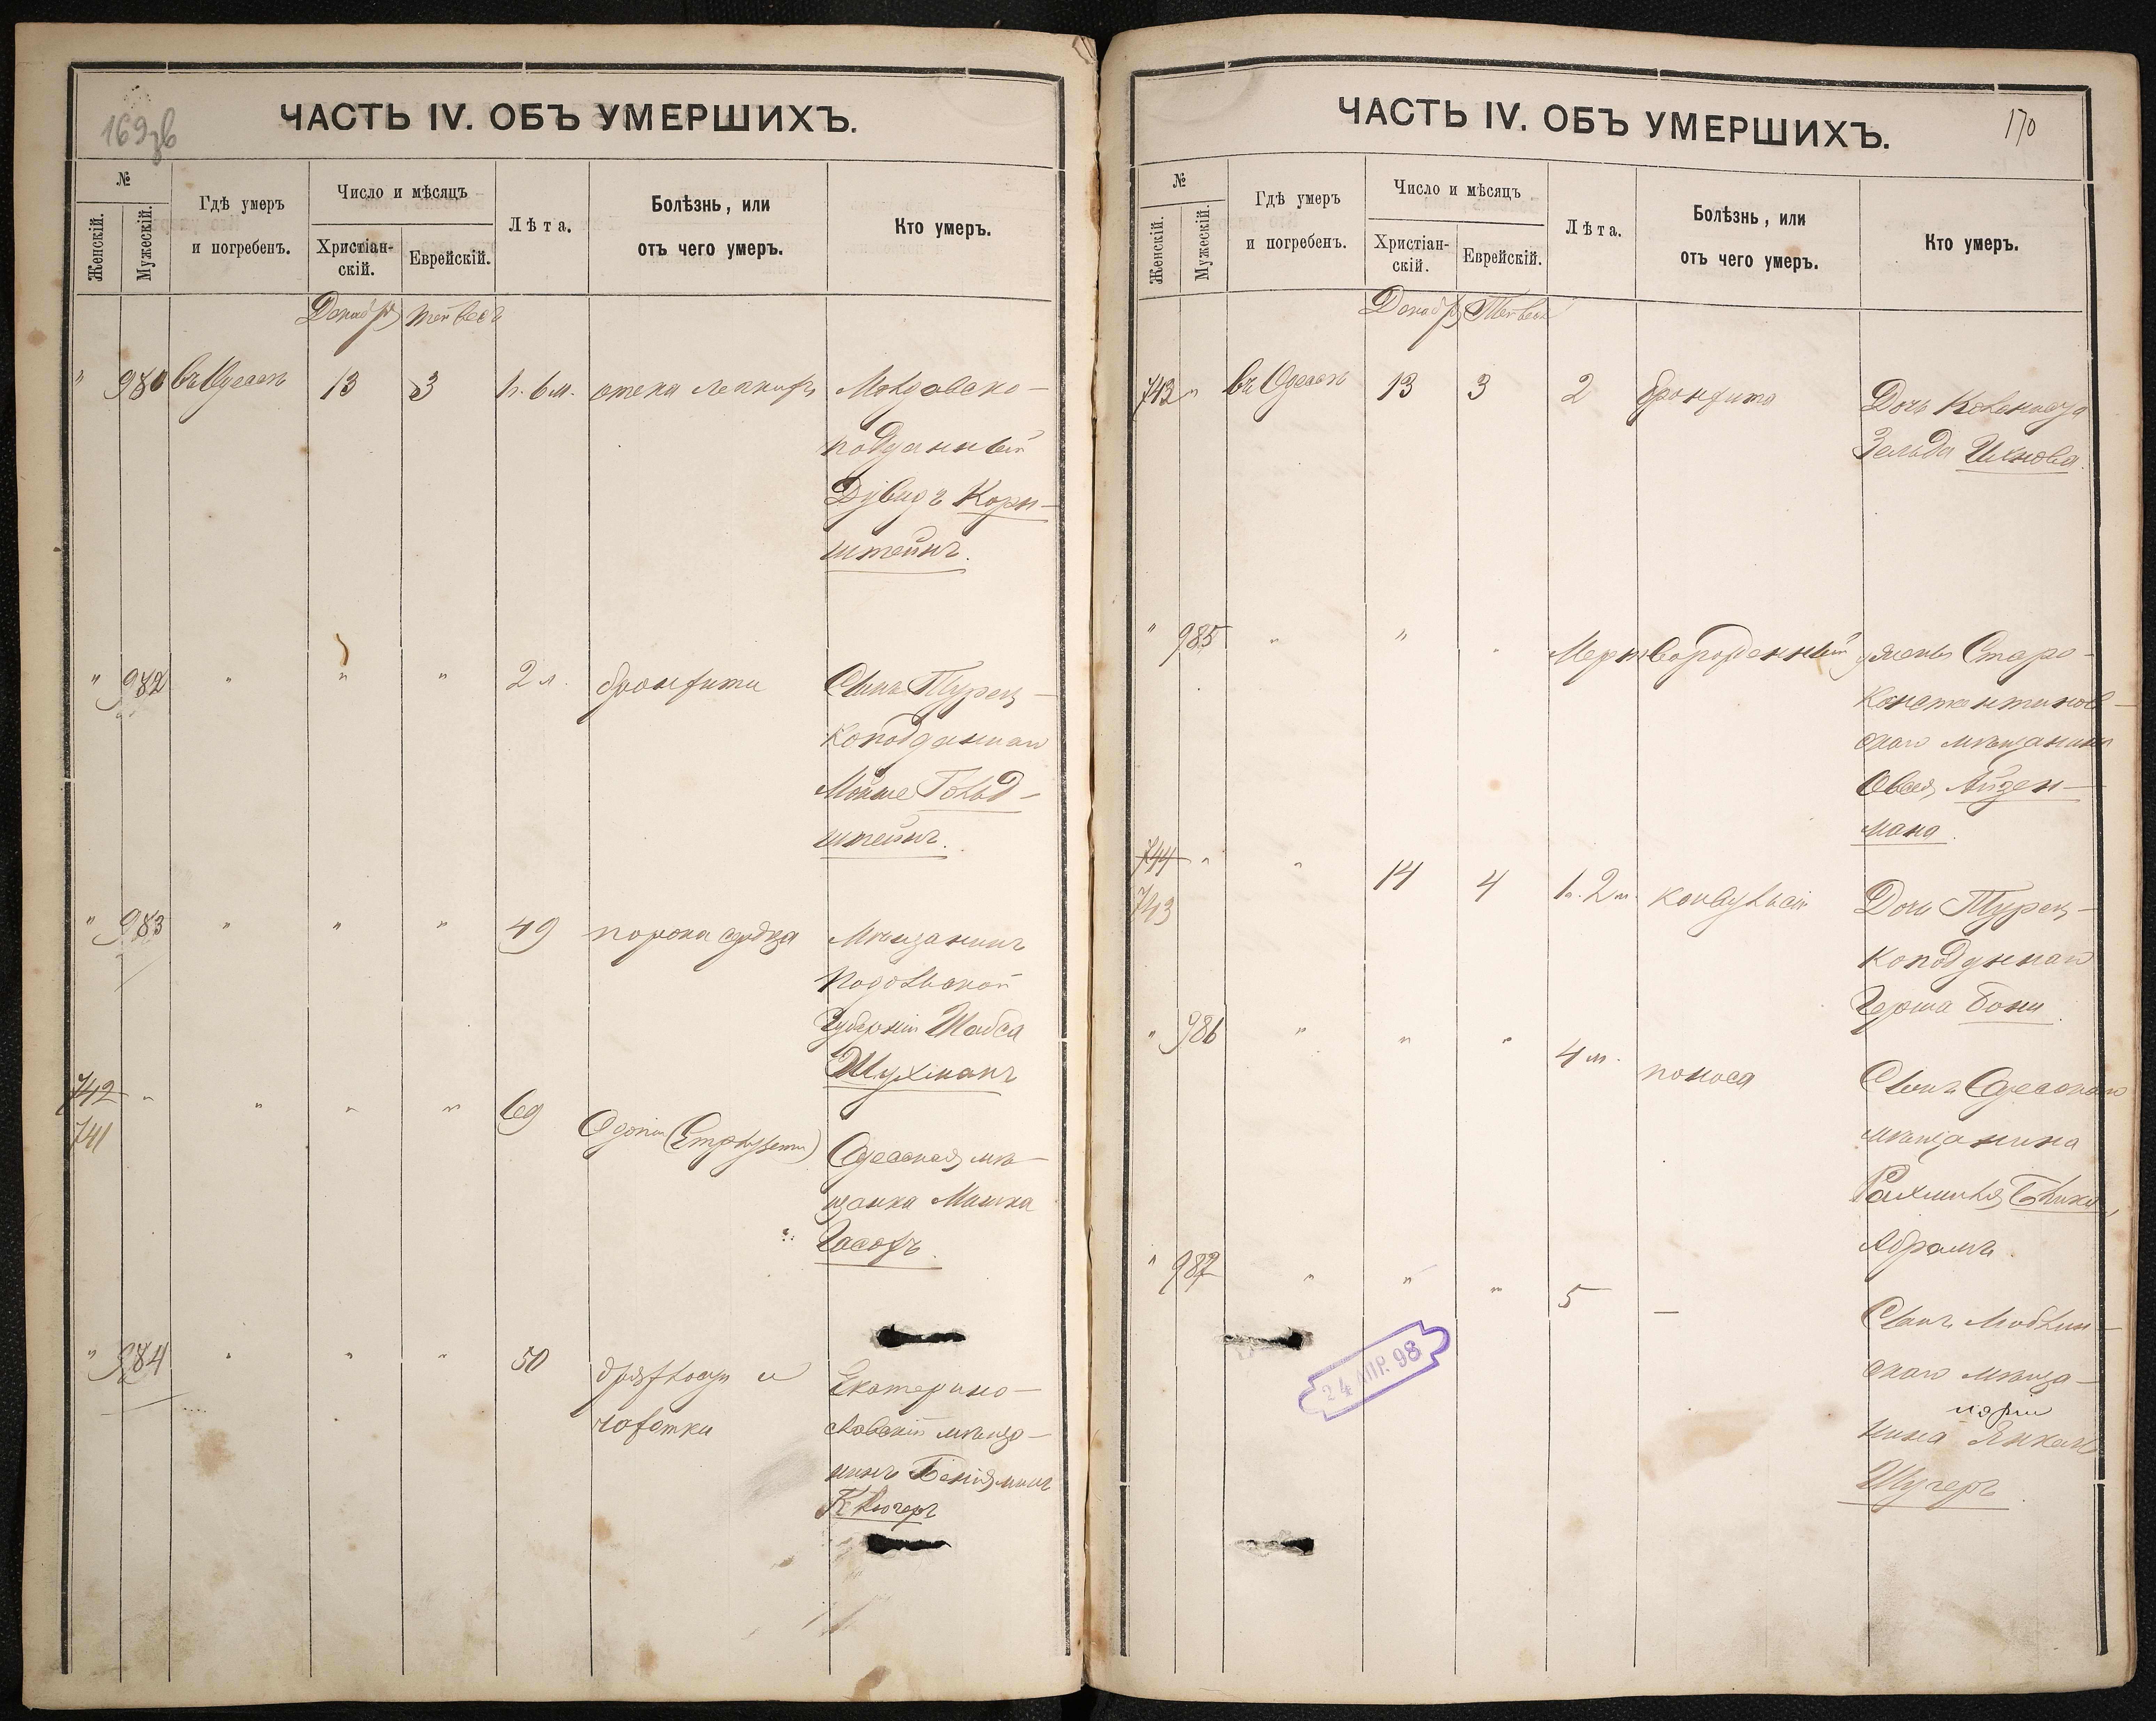 169 зв
ЧАСТЬ IV. ОБЪ УМЕРШИХЪ.
№
Женскій.
Мужескій.
Гдѣ умеръ
и погребенъ.
Число и мѣсяцъ
Христіан-
скій.
Еврейскій.
Лѣта.
Болѣзнь, или
отъ чего умеръ.
Кто умеръ.
Декабрь Тейвесъ
" 981 въ Одессѣ 13 3 1 г. 6 м. отека легкихъ Молдавско-
подданный
Дувидъ Корн-
штейнъ.
" 982 " " " 2 л. бронхита Сынъ Турец-
коподданнаго
Мойше Гольд-
штейнъ.
" 983 " " " 49 порока сердца Мѣщанинъ
Подольской
Губерніи Шабса
Шухманъ
742 " " " " 69 Одесская мѣ-
741
щанка
" 984 " " " 50 и Екатерино-
чахотки
славскій мѣща-
нинъ Беніяминъ
Ключеръ
170
ЧАСТЬ IV. ОБЪ УМЕРШИХЪ.
№
Женскій.
Мужескій.
Гдѣ умеръ
и погребенъ.
Число и мѣсяцъ
Христіан-
скій.
Еврейскій.
Лѣта.
Болѣзнь, или
отъ чего умеръ.
Кто умеръ.
Декабрь Тейвесъ
742 " въ Одессѣ 13 3 2 бронхита Дочь
Зельда
" 985 " " " Мертворожденный у жены Старо-
Константинов-
скаго мѣщанина
Овсея Айзен-
мана.
744 " " 14 4 1 г. 2 м. конвульсіи Дочь Турец-
743
коподданнаго
Герша
" 986 " " " 4 м. поноса Сынъ Одесскаго
мѣщанина
Рахмиля
Абрамъ.
" 987 " " " 5 — Сынъ
скаго мѣща-
нина
Шугеръ.
24 АПР. 98